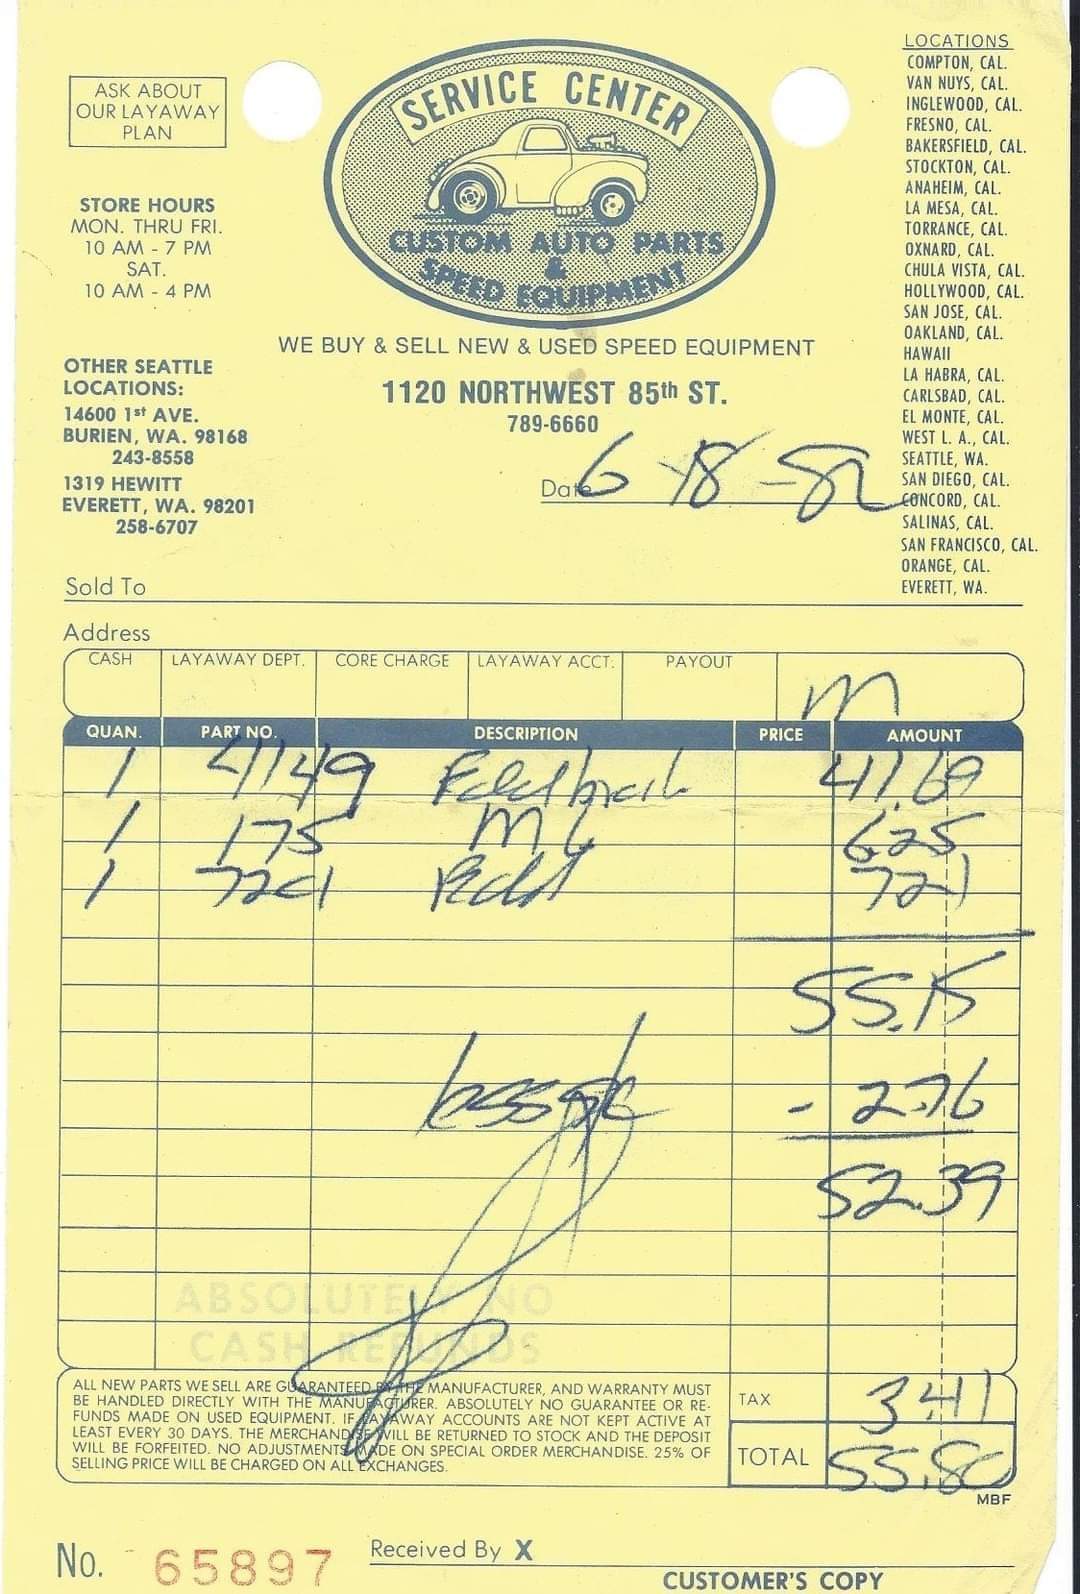 ASK ABOUT
OUR LAYAWAY
PLAN
STORE HOURS
MON. THRU FRI.
10 AM - 7 PM
SAT.
10 AM - 4 PM
OTHER SEATTLE
LOCATIONS:
14600 1st AVE.
BURIEN, WA. 98168
243-8558
1319 HEWITT
EVERETT, WA. 98201
258-6707
SERVICE CENTER
CUSTOM AUTO PARTS
&
SPEED EQUIPMENT
WE BUY & SELL NEW & USED SPEED EQUIPMENT
1120 NORTHWEST 85th ST.
789-6660
Date 6-18-82
LOCATIONS
COMPTON, CAL.
VAN NUYS, CAL.
INGLEWOOD, CAL.
FRESNO, CAL.
BAKERSFIELD, CAL.
STOCKTON, CAL.
ANAHEIM, CAL.
LA MESA, CAL.
TORRANCE, CAL.
OXNARD, CAL.
CHULA VISTA, CAL.
HOLLYWOOD, CAL.
SAN JOSE, CAL.
OAKLAND, CAL.
HAWAII
LA HABRA, CAL.
CARLSBAD, CAL.
EL MONTE, CAL.
WEST L. A., CAL.
SEATTLE, WA.
SAN DIEGO, CAL.
CONCORD, CAL.
SALINAS, CAL.
SAN FRANCISCO, CAL.
ORANGE, CAL.
EVERETT, WA.
Sold To
Address
CASH LAYAWAY DEPT. CORE CHARGE LAYAWAY ACCT. PAYOUT
m
QUAN. PART NO. DESCRIPTION PRICE AMOUNT
1 4149 Edelbrock 41.69
1 175 6.25
1 7201 721
55.15
less 5% - 2.76
52.39
ABSOLUTELY NO
CASH REFUNDS
ALL NEW PARTS WE SELL ARE GUARANTEED BY THE MANUFACTURER, AND WARRANTY MUST
BE HANDLED DIRECTLY WITH THE MANUFACTURER. ABSOLUTELY NO GUARANTEE OR RE-
FUNDS MADE ON USED EQUIPMENT. IF LAYAWAY ACCOUNTS ARE NOT KEPT ACTIVE AT
LEAST EVERY 30 DAYS. THE MERCHANDISE WILL BE RETURNED TO STOCK AND THE DEPOSIT
WILL BE FORFEITED. NO ADJUSTMENTS MADE ON SPECIAL ORDER MERCHANDISE. 25% OF
SELLING PRICE WILL BE CHARGED ON ALL EXCHANGES.
TAX 3.41
TOTAL 55.80
MBF
No. 65897
Received By X
CUSTOMER'S COPY